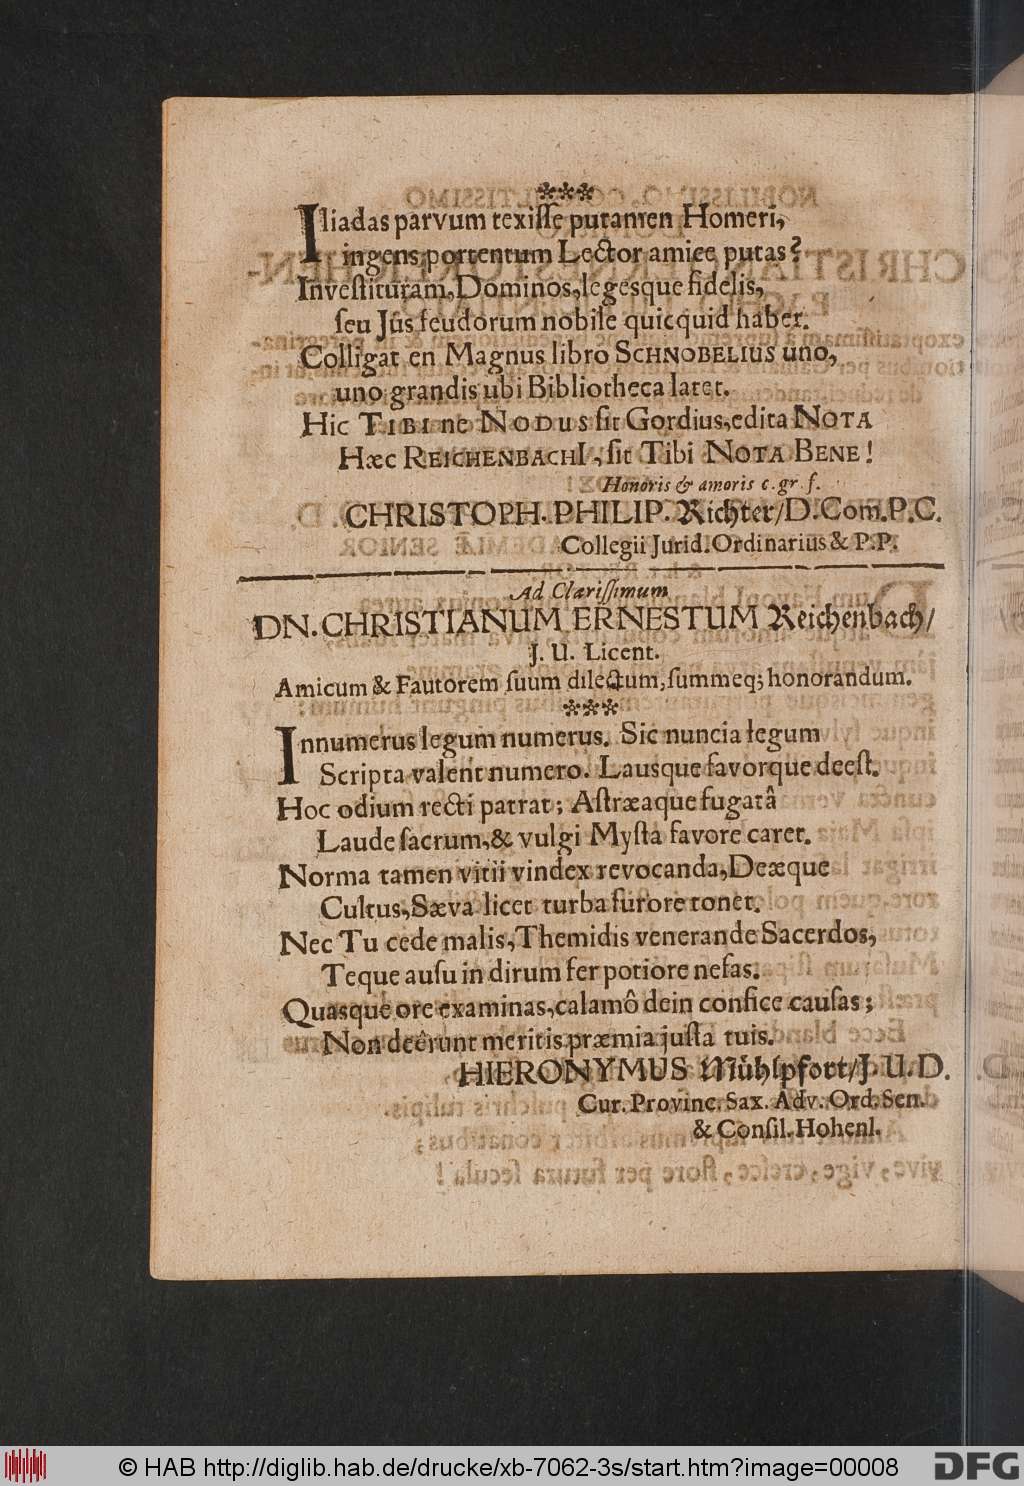 ***
Iliadas parvum texiſſe putamen Homeri,
ingens portentum Lector amice putas?
Inveſtituram, Dominos, legesque fidelis,
ſeu Jús feudorum nobile quicquid habet.
Colligat en Magnus libro SCHNOBELIUS uno,
uno grandis ubi Bibliotheca latet.
Hic TIBI ne NODUS ſit Gordius, edita NOTA
Hæc REICHENBACHI, ſit Tibi NOTA BENE!
Honoris & amoris c. gr. f.
CHRISTOPH. PHILIP. Richter/ D. Com. P. C.
Collegii Jurid. Ordinarius & P. P.
Ad Clariſſimum
DN. CHRISTIANUM ERNESTUM Reichenbach/
J. U. Licent.
Amicum & Fautorem ſuum dilectum, ſummeq; honorandum.
***
Innumerus legum numerus. Sic nuncia legum
Scripta valent numero. Lausque favorque deeſt.
Hoc odium recti patrat; Aſtræaque fugatâ
Laude ſacrum, & vulgi Myſta favore caret.
Norma tamen vitii vindex revocanda, Deæque
Cultus, Sæva licet turba furore tonet.
Nec Tu cede malis, Themidis venerande Sacerdos,
Teque auſu in dirum fer potiore nefas.
Quasque ore examinas, calamô dein confice cauſas;
Non deêrunt meritis præmia juſta tuis.
HIERONYMUS Mühlpfort/ J. U. D.
Cur. Provinc. Sax. Adv. Ord. Sen.
& Conſil. Hohenl.
© HAB http://diglib.hab.de/drucke/xb-7062-3s/start.htm?image=00008
DFG